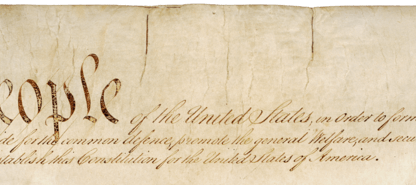 eople of the United States, in order to form
ide for the common defence, promote the general Welfare, and secu
stablish this Constitution for the United States of America.